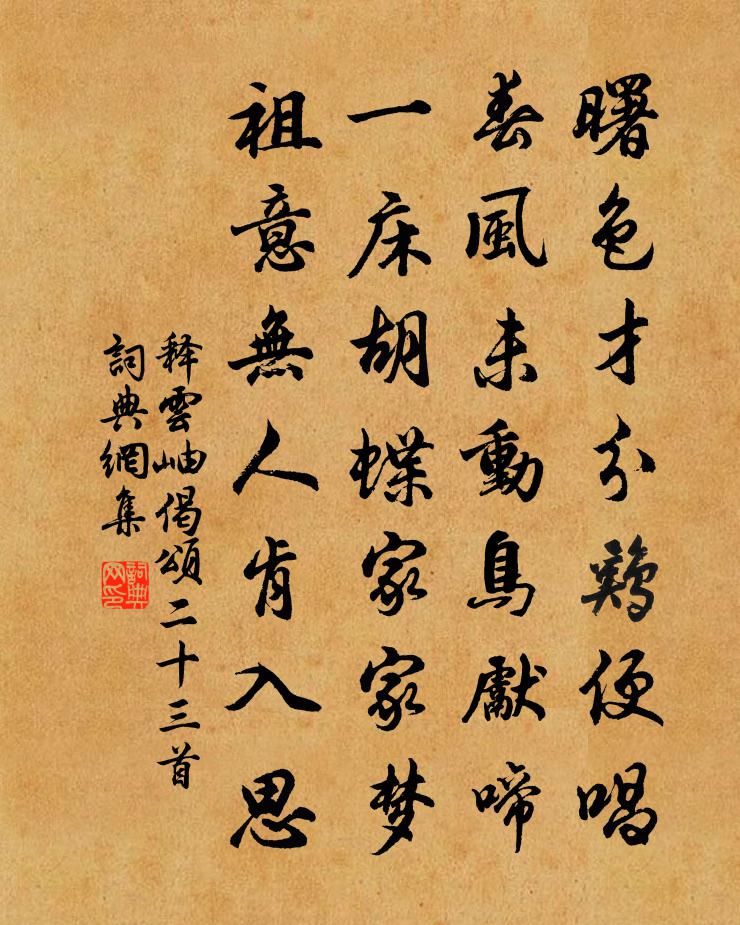 曙色才分鷄便唱
春風未動鳥獻啼
一床胡蝶家家梦
祖意無人肯入思
释雲岫偈頌二十三首
詞典網集
詞典网印